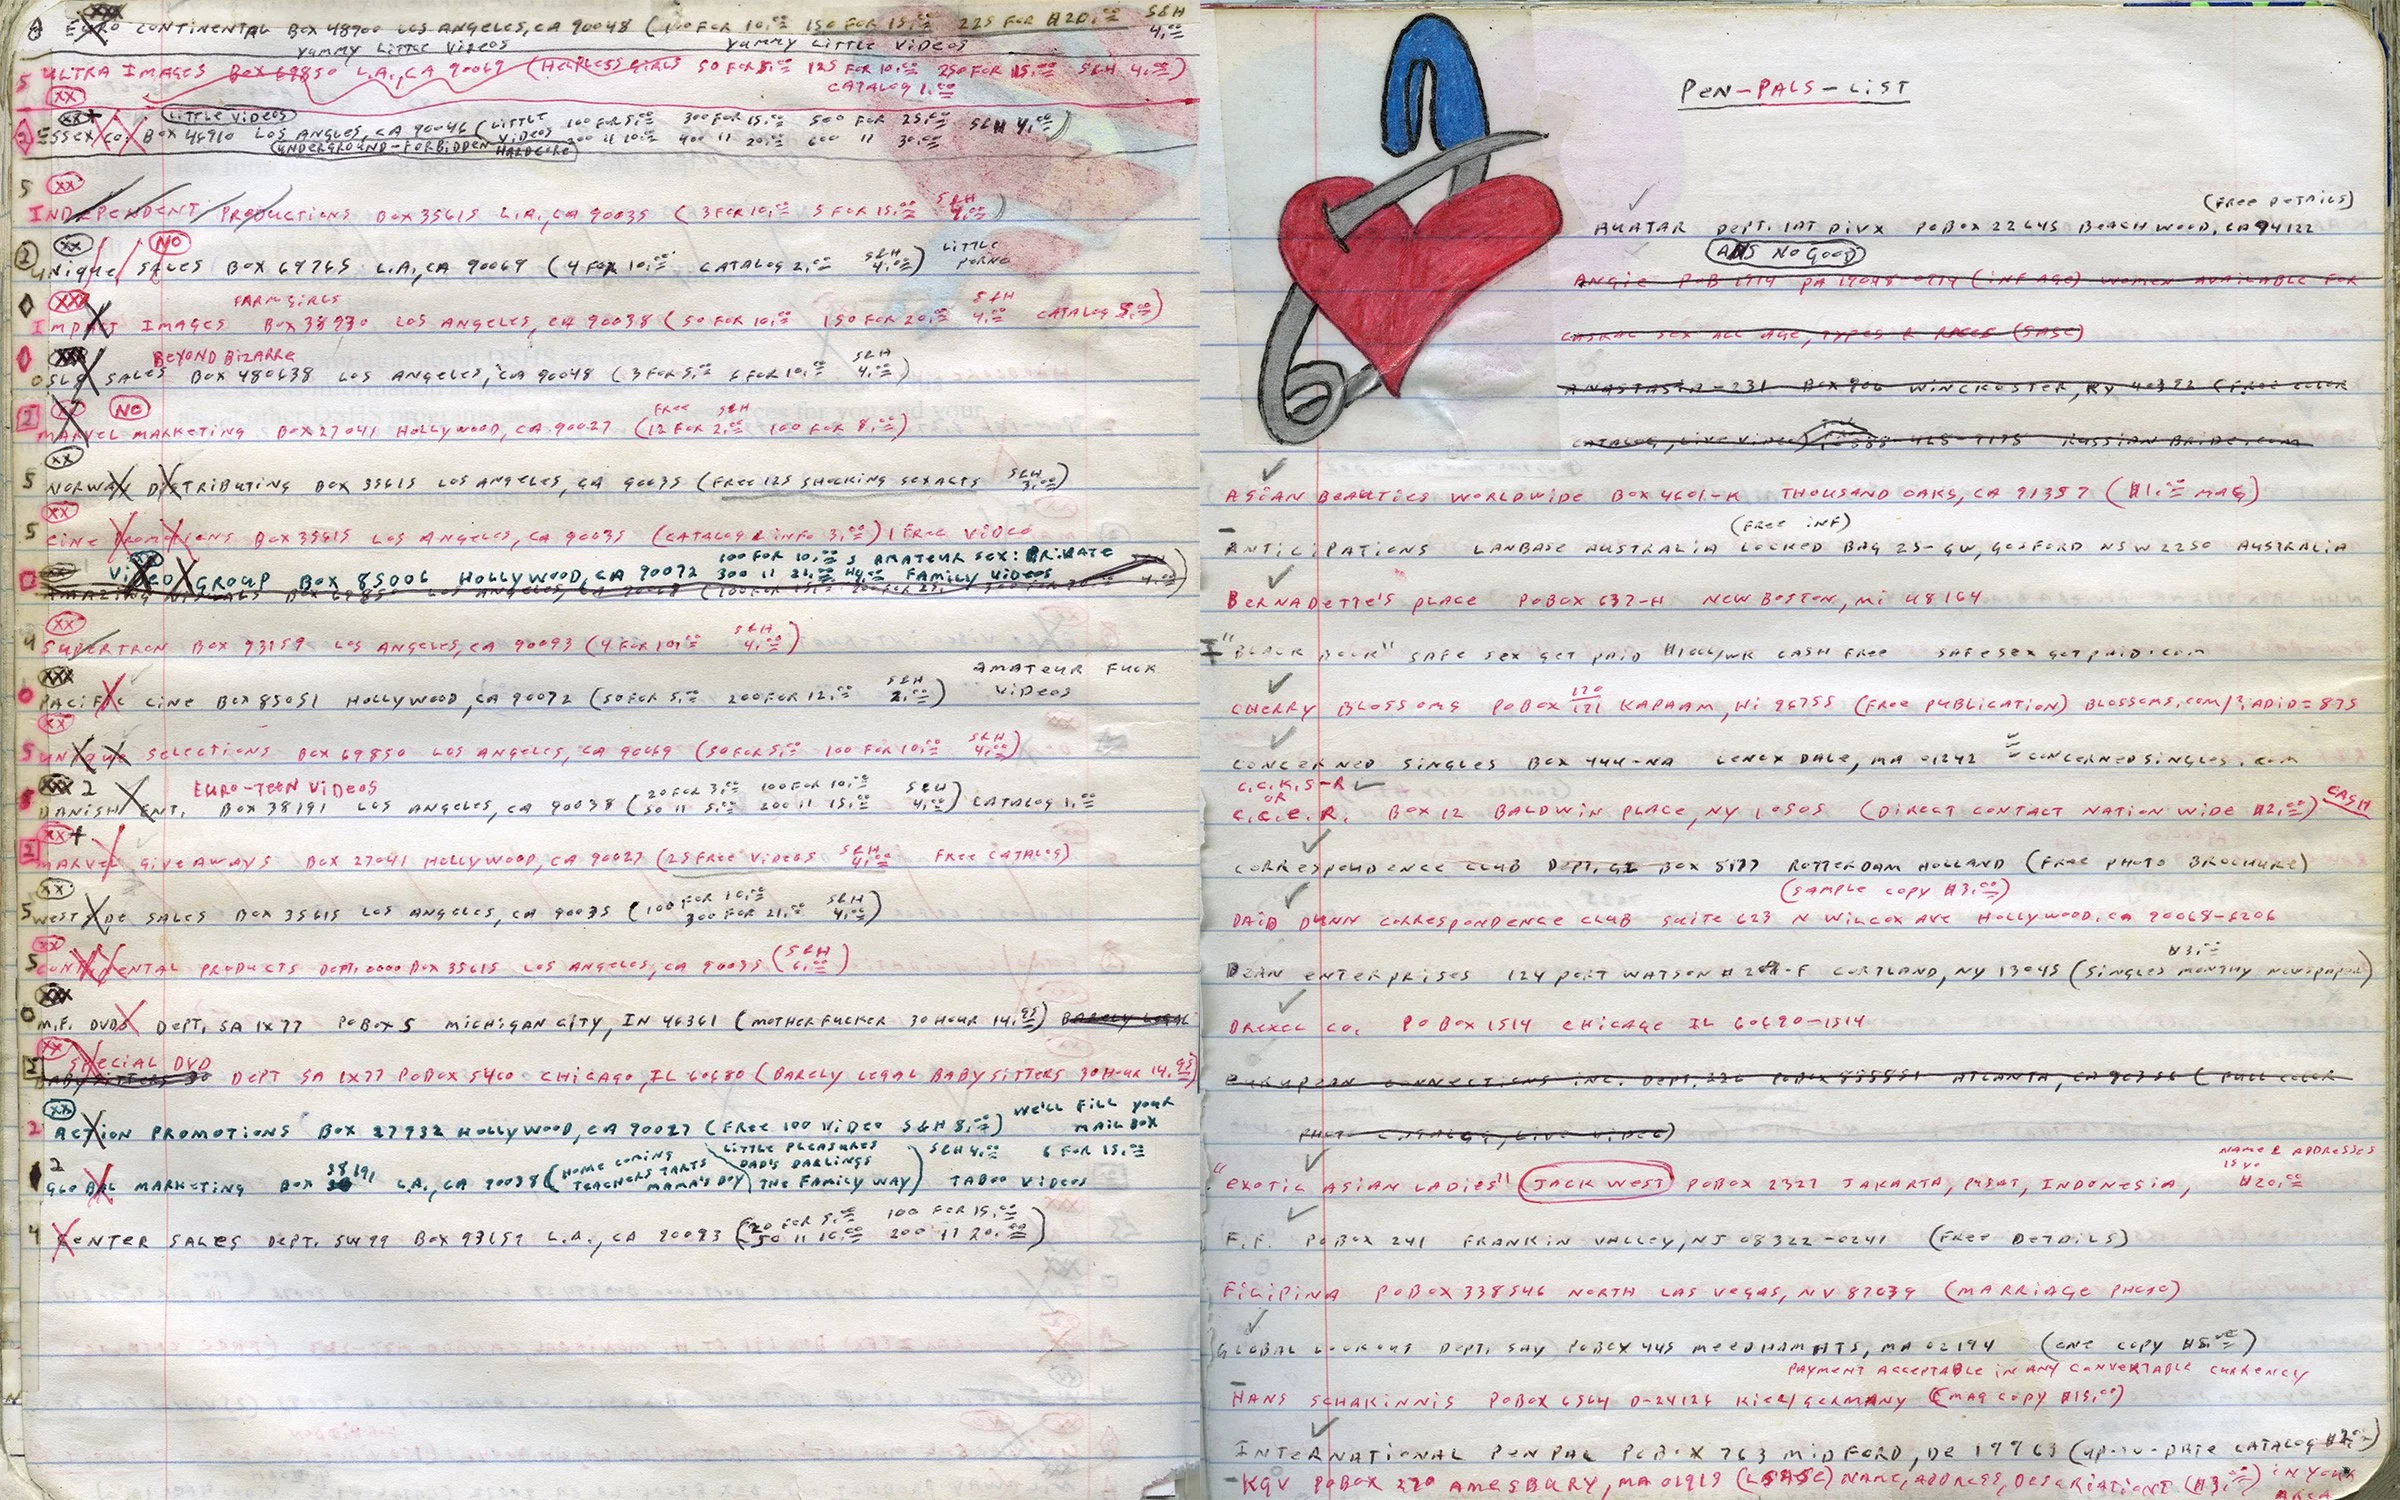 EURO CONTINENTAL BOX 48700 LOS ANGELES, CA 90048 (100 FOR 10.00 150 FOR 15.00 225 FOR $20.00 S&H 4.00
YUMMY LITTLE VIDEOS YUMMY LITTLE VIDEOS
5 ULTRA IMAGES BOX 69850 L.A., CA 90069 (HELPLESS GIRLS 50 FOR 5.00 125 FOR 10.00 250 FOR 15.00 S&H 4.00)
XX CATALOG 1.00
LITTLE VIDEOS
2 ESSEX CO. BOX 46910 LOS ANGLES, CA 90046 (LITTLE VIDEOS 100 FOR 5.00 300 FOR 15.00 500 FOR 25.00 S&H 4.00)
UNDERGROUND-FORBIDDEN HARDCORE 200 11 10.00 400 11 20.00 600 11 30.00
5 XX
INDEPENDENT PRODUCTIONS BOX 35615 L.A., CA 90035 (3 FOR 10.00 5 FOR 15.00 S&H 4.00)
2 XX NO
UNIQUE SALES BOX 69765 L.A., CA 90069 (4 FOR 10.00 CATALOG 2.00 S&H 4.00) LITTLE PORNO
0 XXX FARM GIRLS
IMPACT IMAGES BOX 38930 LOS ANGELES, CA 90038 (50 FOR 10.00 150 FOR 20.00 S&H 4.00 CATALOG 5.00)
0 BEYOND BIZARRE
OSLO SALES BOX 480638 LOS ANGELES, CA 90048 (3 FOR 5.00 6 FOR 10.00 S&H 4.00)
2 XX NO
MARVEL MARKETING BOX 27041 HOLLYWOOD, CA 90027 (FREE 12 FOR 2.00 S&H 100 FOR 8.00)
XX
5 NORWAY DISTRIBUTING BOX 35615 LOS ANGELES, CA 90035 (FREE 125 SHOCKING SEX ACTS S&H 3.00)
XX
5 CINE PROMOTIONS BOX 35615 LOS ANGELES, CA 90035 (CATALOG & INFO 3.00) 1 FREE VIDEO
VIDEO GROUP BOX 85006 HOLLYWOOD, CA 90072 100 FOR 10.00 AMATEUR SEX: PRIVATE
300 11 21.00 FAMILY VIDEOS
BOX 69850 LOS ANGELES, CA
XX
4 SUPERTRON BOX 93159 LOS ANGELES, CA 90093 (4 FOR 10.00 S&H 4.00)
XXX
0 PACIFIC CINE BOX 85051 HOLLYWOOD, CA 90072 (50 FOR 5.00 200 FOR 12.00 S&H 2.00) AMATEUR FUCK VIDEOS
XX
5 UNIQUE SELECTIONS BOX 69850 LOS ANGELES, CA 90069 (50 FOR 5.00 100 FOR 10.00 S&H 4.00)
XXX 2 EURO-TEEN VIDEOS
DANISH ENT. BOX 38191 LOS ANGELES, CA 90038 (20 FOR 3.00 100 FOR 10.00 50 11 5.00 200 11 15.00 S&H 4.00) CATALOG 1.00
XX+
2 MARVEL GIVEAWAYS BOX 27041 HOLLYWOOD, CA 90027 (25 FREE VIDEOS S&H 4.00 FREE CATALOG)
XX
5 WESTSIDE SALES BOX 35615 LOS ANGELES, CA 90035 (100 FOR 10.00 300 FOR 21.00 S&H 4.00)
XX
5 CONTINENTAL PRODUCTS DEPT. 0000 BOX 35615 LOS ANGELES, CA 90035 (S&H 6.00)
XXX
0 M.F. DVDS DEPT. SA 1X77 PO BOX 5 MICHIGAN CITY, IN 46361 (MOTHER FUCKER 30 HOUR 14.95) BARELY LEGAL
XX SPECIAL DVD
2 BABYSITTERS 30 DEPT SA 1X77 PO BOX 5460 CHICAGO, IL 60680 (BARELY LEGAL BABYSITTERS 30 HOUR 14.95)
XX
2 ACTION PROMOTIONS BOX 27932 HOLLYWOOD, CA 90027 (FREE 100 VIDEO S&H 8.00) WE'LL FILL YOUR MAIL BOX
2
GLOBAL MARKETING BOX 38191 L.A., CA 90038 (HOME COMING TEACHERS TARTS MAMA'S BOY LITTLE PLEASURES DAD'S DARLINGS THE FAMILY WAY) S&H 4.00 6 FOR 15.00 TABOO VIDEOS
4 CENTER SALES DEPT. SW99 BOX 93159 L.A., CA 90093 (20 FOR 5.00 100 FOR 15.00 50 11 10.00 200 11 20.00)
PEN-PALS-LIST
(FREE DETAILS)
AVATAR DEPT. 1AT DIVX PO BOX 22645 BEACHWOOD, CA 94122
ADS NO GOOD
ANGIE POB 1914 PA 19048-0914 (INF AGE) WOMEN AVAILABLE FOR
CASUAL SEX ALL AGE, TYPES & RACES (SASE)
ANASTASIA-231 BOX 906 WINCHESTER, KY 40392 (FREE COLOR
CATALOG, LIVE VIDEO) RUSSIAN BRIDE.COM
ASIAN BEAUTIES WORLDWIDE BOX 4601-K THOUSAND OAKS, CA 91359 ($1.00 MAG)
(FREE INF)
ANTICIPATIONS LANBASE AUSTRALIA LOCKED BAG 25-GW, GOSFORD NSW 2250 AUSTRALIA
BERNADETTE'S PLACE PO BOX 637-H NEW BOSTON, MI 48164
"BLACK BOOK" SAFE SEX GET PAID $1000/WK CASH FREE SAFESEXGETPAID.COM
CHERRY BLOSSOMS PO BOX 190/171 KAPAAM, HI 96755 (FREE PUBLICATION) BLOSSOMS.COM/?ADID=875
CONCERNED SINGLES BOX 444-NA LENOX DALE, MA 01242 CONCERNEDSINGLES.COM
C.C.K.S-R
OR
C.C.E.R. BOX 12 BALDWIN PLACE, NY 10505 (DIRECT CONTACT NATION WIDE $2.00) CASH
CORRESPONDENCE CLUB DEPT. GZ BOX 8177 ROTTERDAM HOLLAND (FREE PHOTO BROCHURE)
(SAMPLE COPY $3.00)
DAID DUNN CORRESPONDENCE CLUB SUITE 623 N WILCOX AVE HOLLYWOOD, CA 90068-6206
$3.00
DEAN ENTERPRISES 124 PORT WATSON # -F CORTLAND, NY 13045 (SINGLES MONTHY NEWSPAPER)
DREXEL CO. PO BOX 1514 CHICAGO IL 60690-1514
EUROPEAN CONNECTIONS INC. DEPT. 226 PO BOX 888851 ATLANTA, GA 30356 (FULL COLOR
PHOTO CATALOG, LIVE VIDEO)
NAME & ADDRESSES
"EXOTIC ASIAN LADIES" JACK WEST PO BOX 2327 JAKARTA, PUSAT, INDONESIA, $20.00
F.F. PO BOX 241 FRANKIN VALLEY, NJ 08322-0241 (FREE DETAILS)
FILIPINA PO BOX 338546 NORTH LAS VEGAS, NV 87039 (MARRIAGE PHOTO)
GLOBAL LOOKOUT DEPT. SAY PO BOX 445 MEEDHAM HTS, MA 02194 (ONE COPY $5.00)
PAYMENT ACCEPTABLE IN ANY CONVERTABLE CURRENCY
HANS SCHAKINNIS PO BOX 6564 D-24126 KIEL/GERMANY (MAG COPY $15.00)
INTERNATIONAL PEN PAL PO BOX 763 MIDFORD, DE 19963 (UP-TO-DATE CATALOG $2.00)
-KGV PO BOX 270 AMESBURY, MA 01913 (LSASE) NAME, ADDRESS, DESCRIPTION ($3.00) IN YOUR AREA